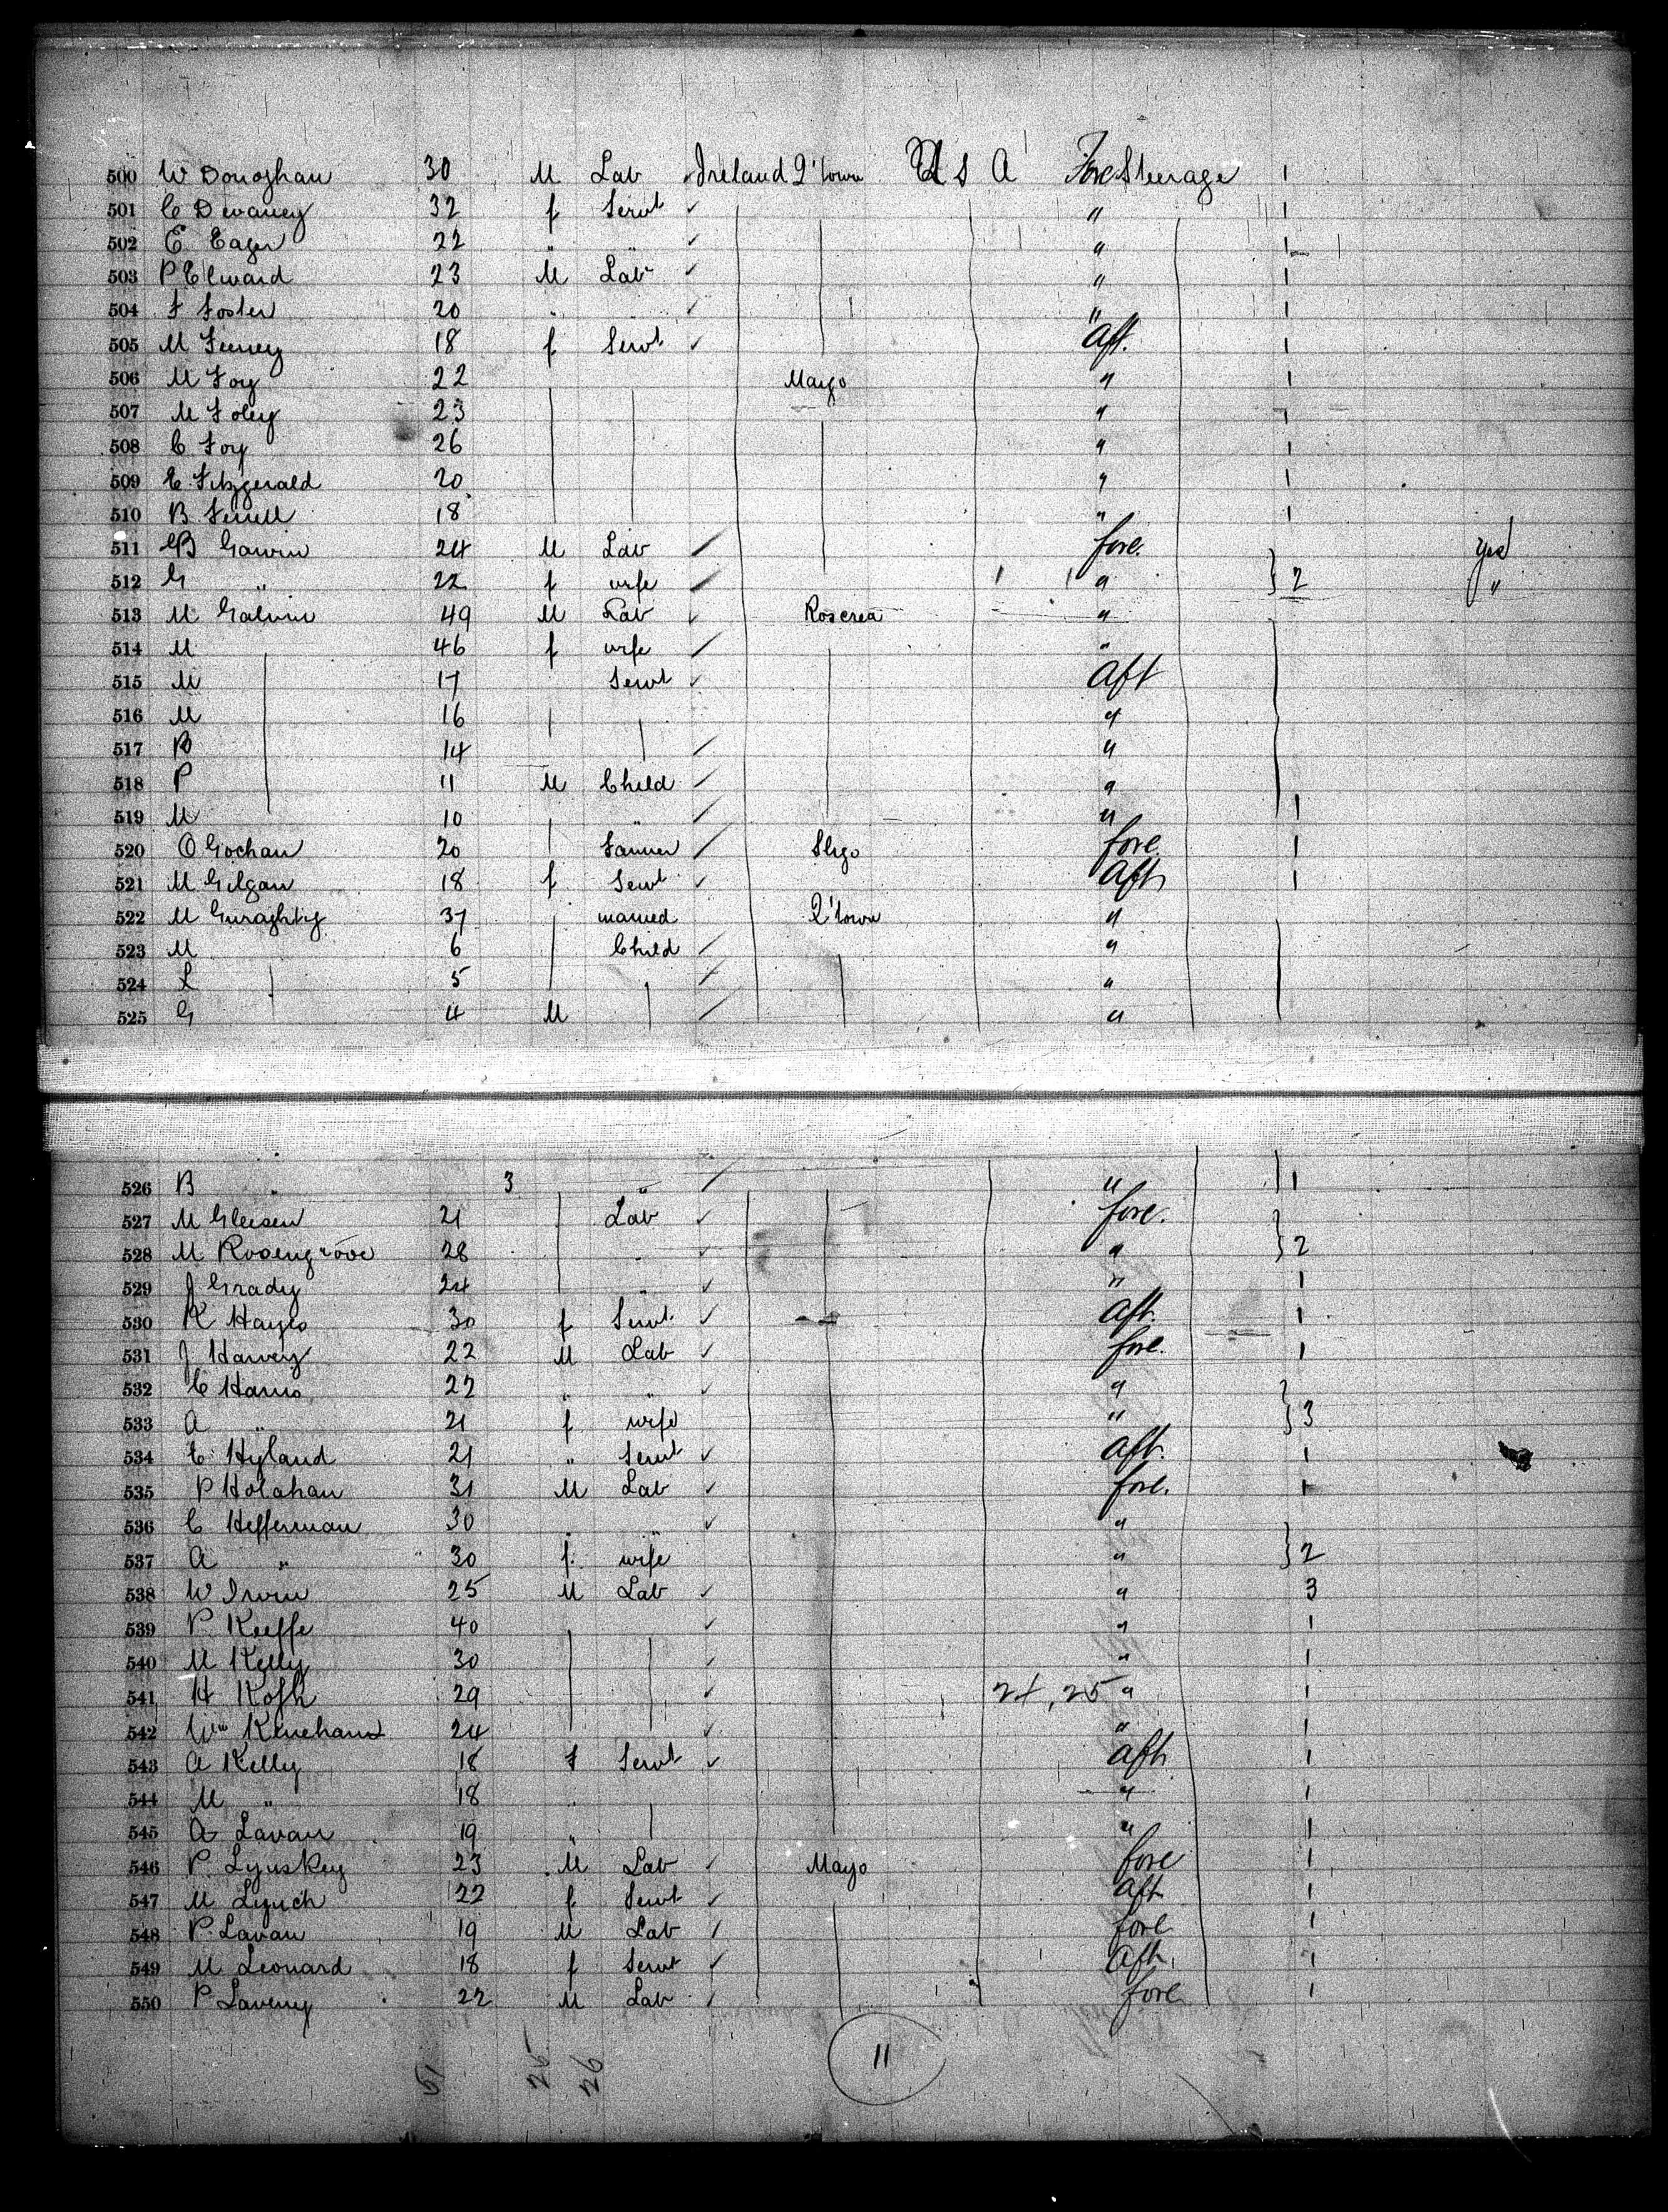 500 W Donoghan 30 M Lab Ireland Q'town U S A Fore Steerage 1
501 C Devaney 32 f Servt ✓ " 1
502 E Eager 22 " " ✓ " 1
503 P Elward 23 M Lab ✓ " 1
504 F Foster 20 " ✓ " 1
505 M Feeney 18 f Servt ✓ Aft. 1
506 M Foy 22 Mayo " 1
507 M Foley 23 " 1
508 C Foy 26 " 1
509 E Fitzgerald 20 " 1
510 B Ferrell 18 " 1
511 B Gavin 24 M Lab fore. yes
512 G " 22 f wife " } 2 "
513 M Galvin 49 M Lab ✓ Roscrea "
514 M 46 f wife "
515 M 17 Servt ✓ Aft
516 M 16 "
517 B 14 "
518 P 11 M Child "
519 M 10 " " 1
520 O Gochan 20 Farmer Sligo fore. 1
521 M Gilgan 18 f Servt ✓ Aft 1
522 M Guraghty 37 married Q'town "
523 M 6 Child "
524 L 5 "
525 G 4 M "
526 B " 3 " " 1
527 M Gleesen 21 Lab ✓ fore.
528 M Rosengrove 28 " ✓ " } 2
529 J Grady 24 " ✓ " 1
530 K Hayes 30 f Servt. ✓ Aft. 1
531 J Harvey 22 M Lab ✓ fore. 1
532 C Harris 22 " " ✓ "
533 A " 21 f wife " } 3
534 C Hyland 21 " Servt ✓ Aft. 1
535 P Holahan 31 M Lab ✓ fore. 1
536 C Hefferman 30 " " ✓ "
537 A " 30 f. wife " } 2
538 W Irvin 25 M Lab ✓ " 3
539 P Keeffe 40 ✓ " 1
540 M Kelly 30 ✓ " 1
541 H 29 ✓ 24, 25 " 1
542 Wm 24 ✓ " 1
543 A Kelly 18 f Servt ✓ Aft 1
544 M " 18 " " 1
545 A Lavan 19 " " 1
546 P Lynskey 23 M Lab ✓ Mayo fore 1
547 M Lynch 22 f Servt ✓ Aft 1
548 P Lavan 19 M Lab fore 1
549 M Leonard 18 f Servt ✓ Aft. 1
550 P Laveny 22 M Lab fore 1
51 25 26 11